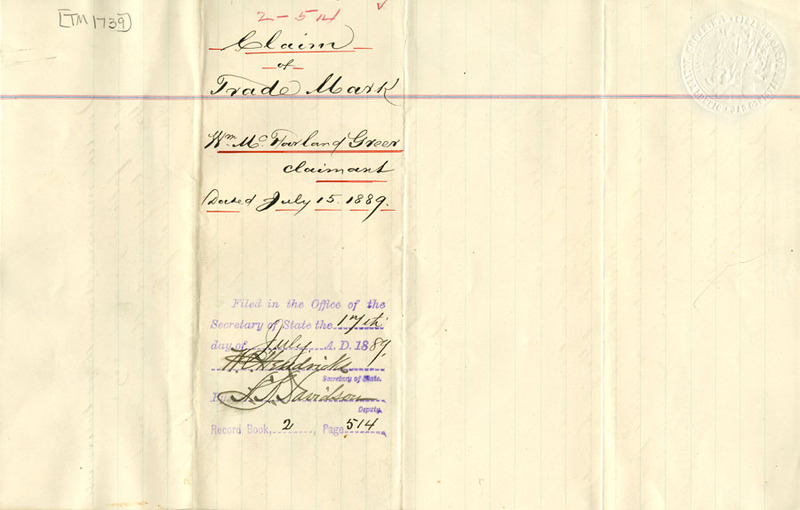 [TM 1739]
2-514
Claim
of
Trade Mark
Wm. McFarland Greer
claimant
Dated July 15. 1889.
Filed in the Office of the
Secretary of State the 17th
day of July A. D. 1889.
W. C. Hendricks
Secretary of State.
By Davidson
Deputy.
Record Book, 2, Page 514